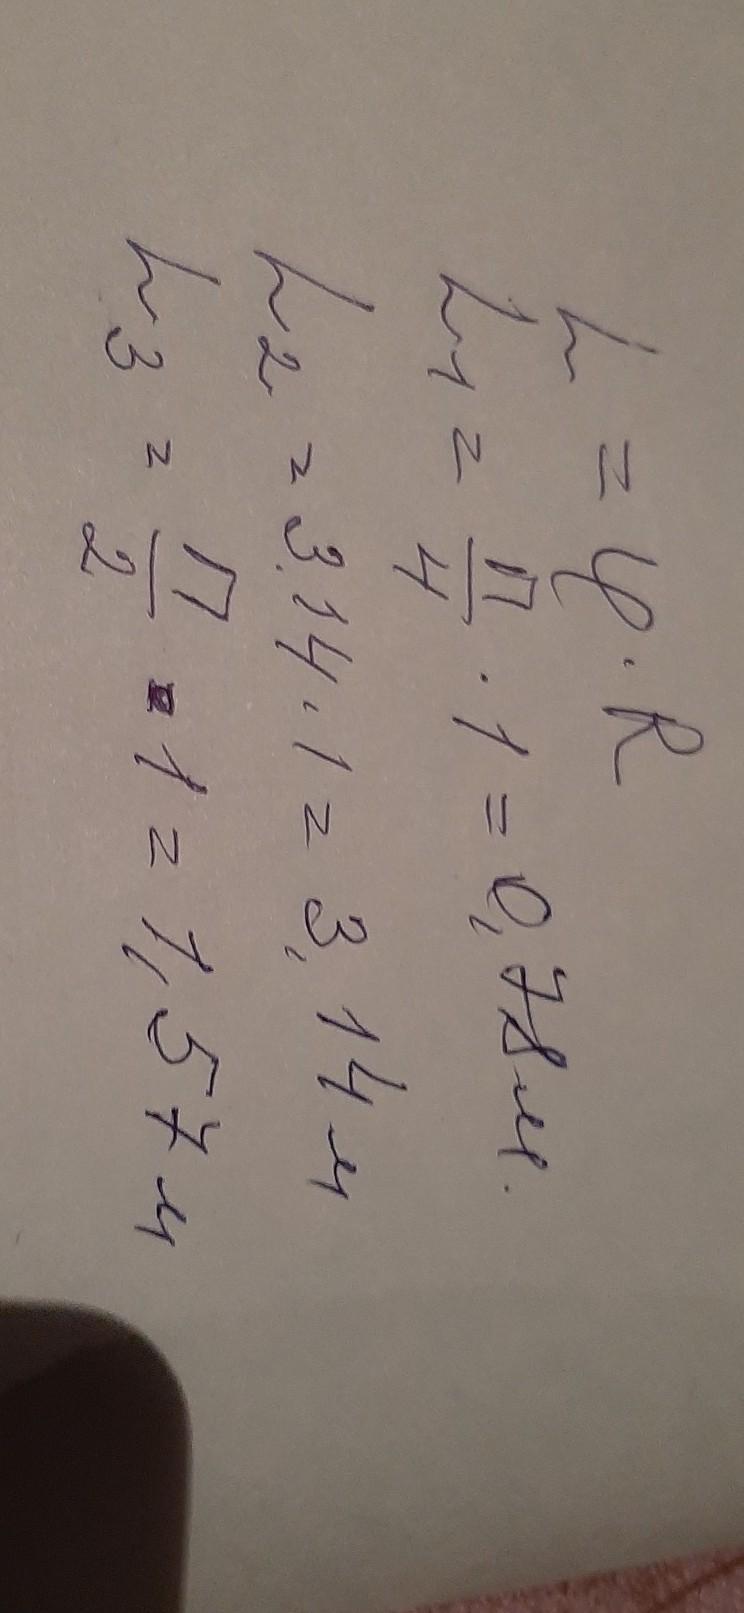 L = φ · R
L1 = П/4 · 1 = 0,78 м.
L2 = 3.14 · 1 = 3,14 м
L3 = П/2 · 1 = 1,57 м